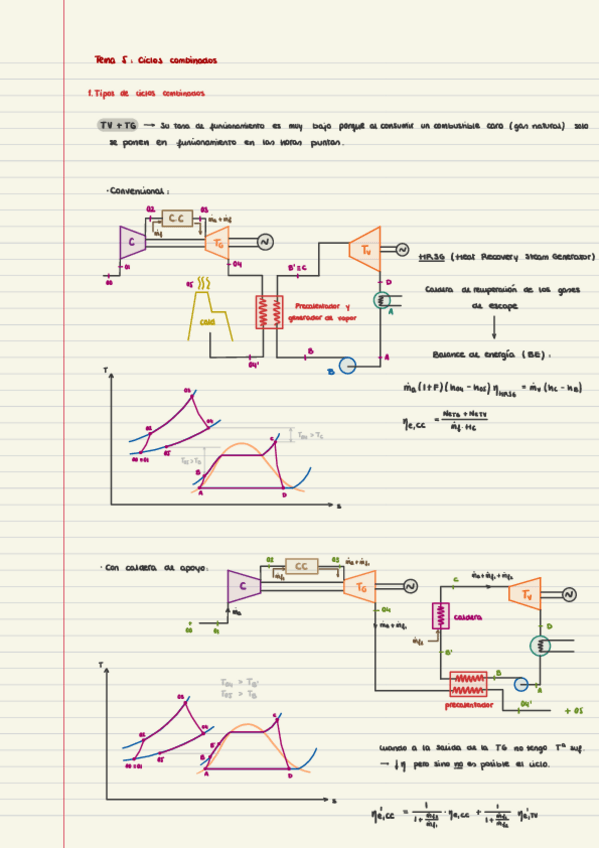 Tema 5: Ciclos combinados
1. Tipos de ciclos combinados
TV + TG → Su tasa de funcionamiento es muy baja porque al consumir un combustible caro (gas natural) solo
se ponen en funcionamiento en las horas puntas.
· Convencional:
02 C.C 03 ṁa + ṁf
ṁf
C TG
00 01 04
B' = C TV
D
A
05
cald
Precalentador y
generador de vapor
04' B B A
HRSG (Heat Recovery Steam Generator)
Caldera de recuperación de los gases
de escape
Balance de energía (BE):
ṁa (1+F) (h04 - h05) ηHRSG = ṁv (hC - hB)
ηe,CC = (NeTG + NeTV) / (ṁf · Hc)
T
03
02 04
00=01 05
C T04 > TC
T05 > TB
B
A D
s
· Con caldera de apoyo:
02 CC 03 ṁa + ṁf1
ṁf1
C TG
ṁa
00 01
04
ṁa + ṁf1
C ṁa + ṁf1 + ṁf2
TV
caldera
ṁf2
B'
D
B
A
precalentador
04' → 05
T
T04 > TB'
T05 > TB
03
02 04
00=01 05
C
B'
B
A D
s
cuando a la salida de la TG no tengo Tª suf.
→ ↓η pero sino no es posible el ciclo.
η'e,CC = 1 / (1 + ṁf2/ṁf1) · ηe,CC + 1 / (1 + ṁf1/ṁf2) η'e,TV